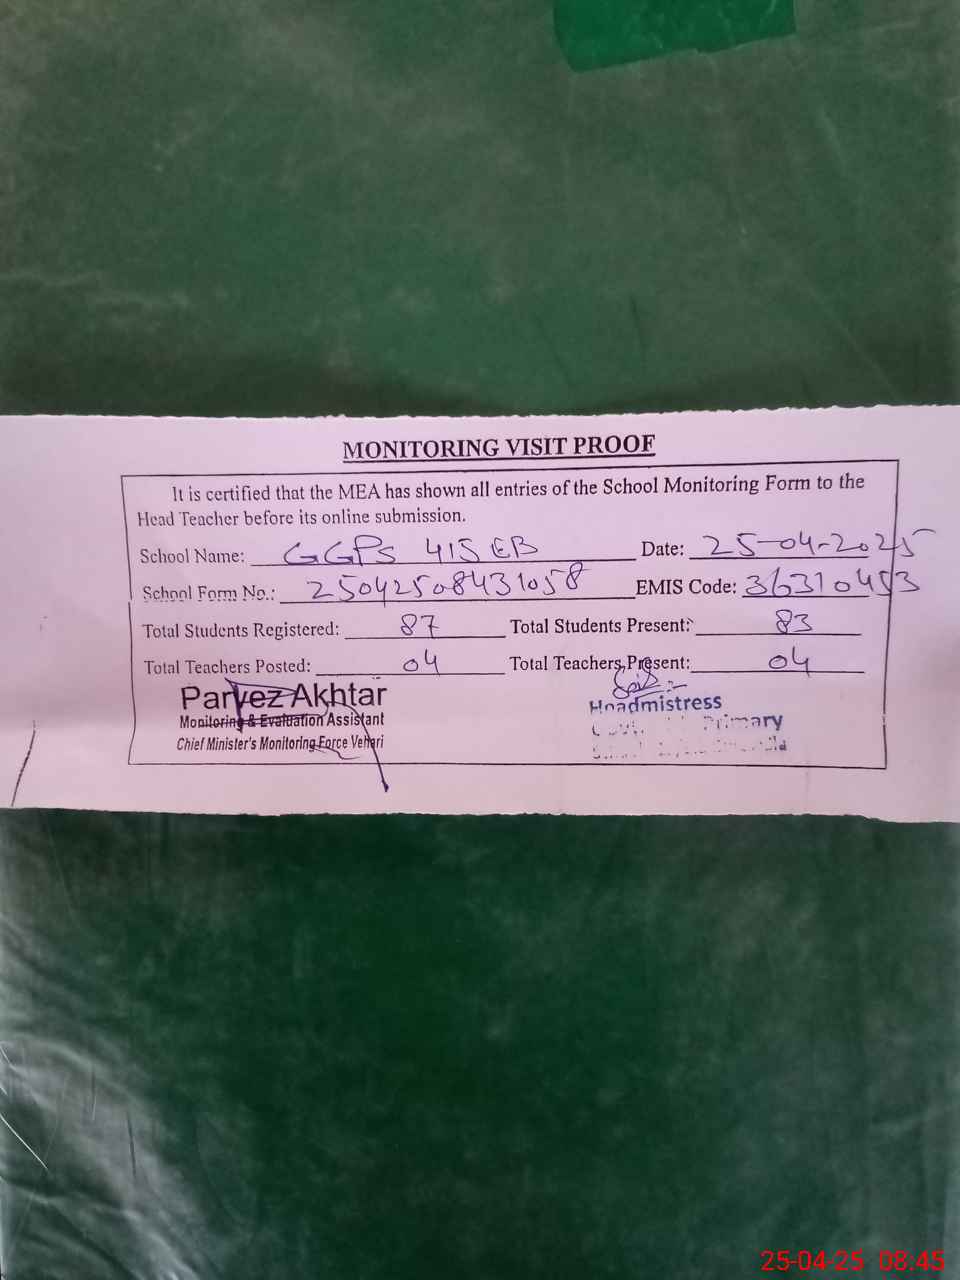 MONITORING VISIT PROOF
It is certified that the MEA has shown all entries of the School Monitoring Form to the
Head Teacher before its online submission.
School Name: GGPS 415 EB Date: 25-04-2025
School Form No.: 25042508431058 EMIS Code: 36310453
Total Students Registered: 87 Total Students Present: 83
Total Teachers Posted: 04 Total Teachers Present: 04
Parvez Akhtar
Monitoring & Evaluation Assistant
Chief Minister's Monitoring Force Vehari
Headmistress
Primary
25-04-25 08:45